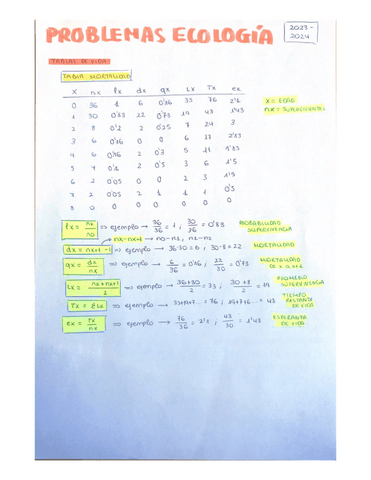 PROBLEMAS ECOLOGÍA
2023-2024
TABLAS DE VIDA
TABLA MORTALIDAD
X nx lx dx qx Lx Tx ex
0 36 1 6 0'16 33 76 2'1
1 30 0'83 22 0'73 19 43 1'43
2 8 0'2 2 0'25 7 24 3
3 6 0'16 0 0 6 17
4 6 0'16 2 0'3 5 11
5 4 0'1 2 0'5 3 6 1'5
6 2 0'05 0 0 2 3 1'5
7 2 0'05 2 1 1 1 0'5
8 0 0 0 0 0 0 0
X = EDAD
nx = SUPERVIVIENTES
lx = nx/no ⇒ ejemplo → 36/36 = 1 ; 30/36 = 0'83 PROBABILIDAD SUPERVIVENCIA
nx-nx+1 → no-n1, n1-n2
⇒ ejemplo → 36-30 = 6 ; 30-8 = 22 MORTALIDAD
qx = dx/nx ⇒ ejemplo → 6/36 = 0'16 ; 22/30 = 0'73 MORTALIDAD
Lx = nx+nx+1/2 ⇒ ejemplo → 36+30/2 = 33 ; 30+8/2 = 19 PROMEDIO SUPERVIVENCIA
Tx = ΣLx ⇒ ejemplo → 33+19+7... = 76 ; 19+7+6... = 43 TIEMPO RESTANTE DE VIDA
ex = Tx/nx ⇒ ejemplo → 76/36 = 2'1 ; 43/30 = 1'43 ESPERANZA DE VIDA